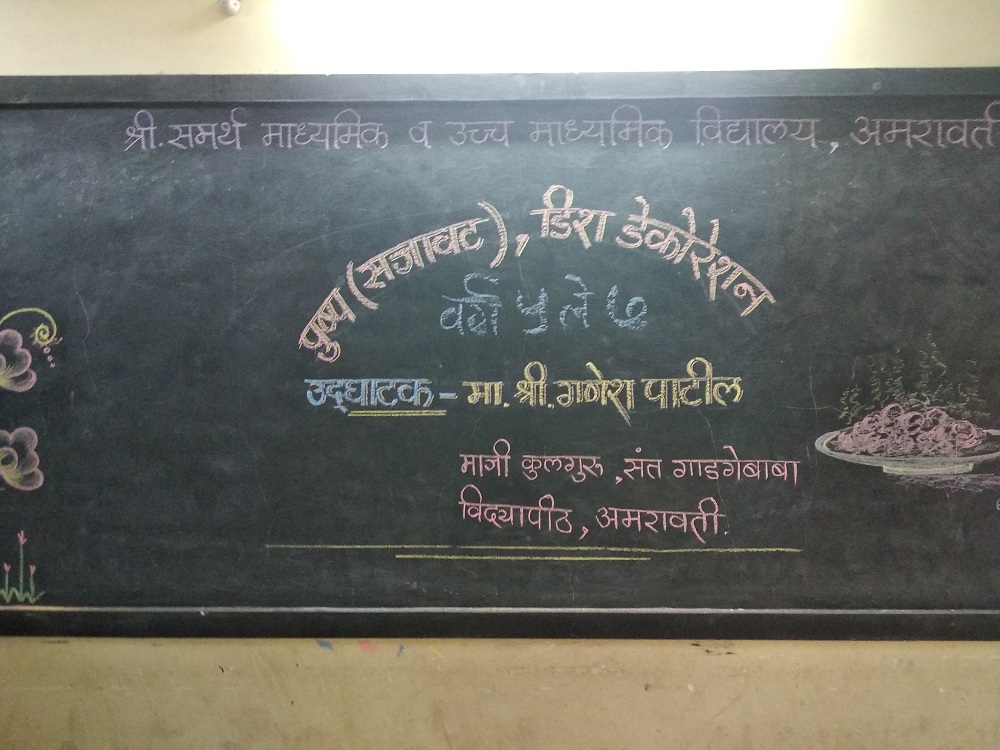 श्री.समर्थ माध्यमिक व उच्च माध्यमिक विद्यालय, अमरावती
पुष्प (सजावट), डिश डेकोरेशन
वर्ग ५ ते ७
उद्घाटक - मा. श्री. गणेश पाटील
माजी कुलगुरू ,संत गाडगेबाबा
विद्यापीठ, अमरावती.